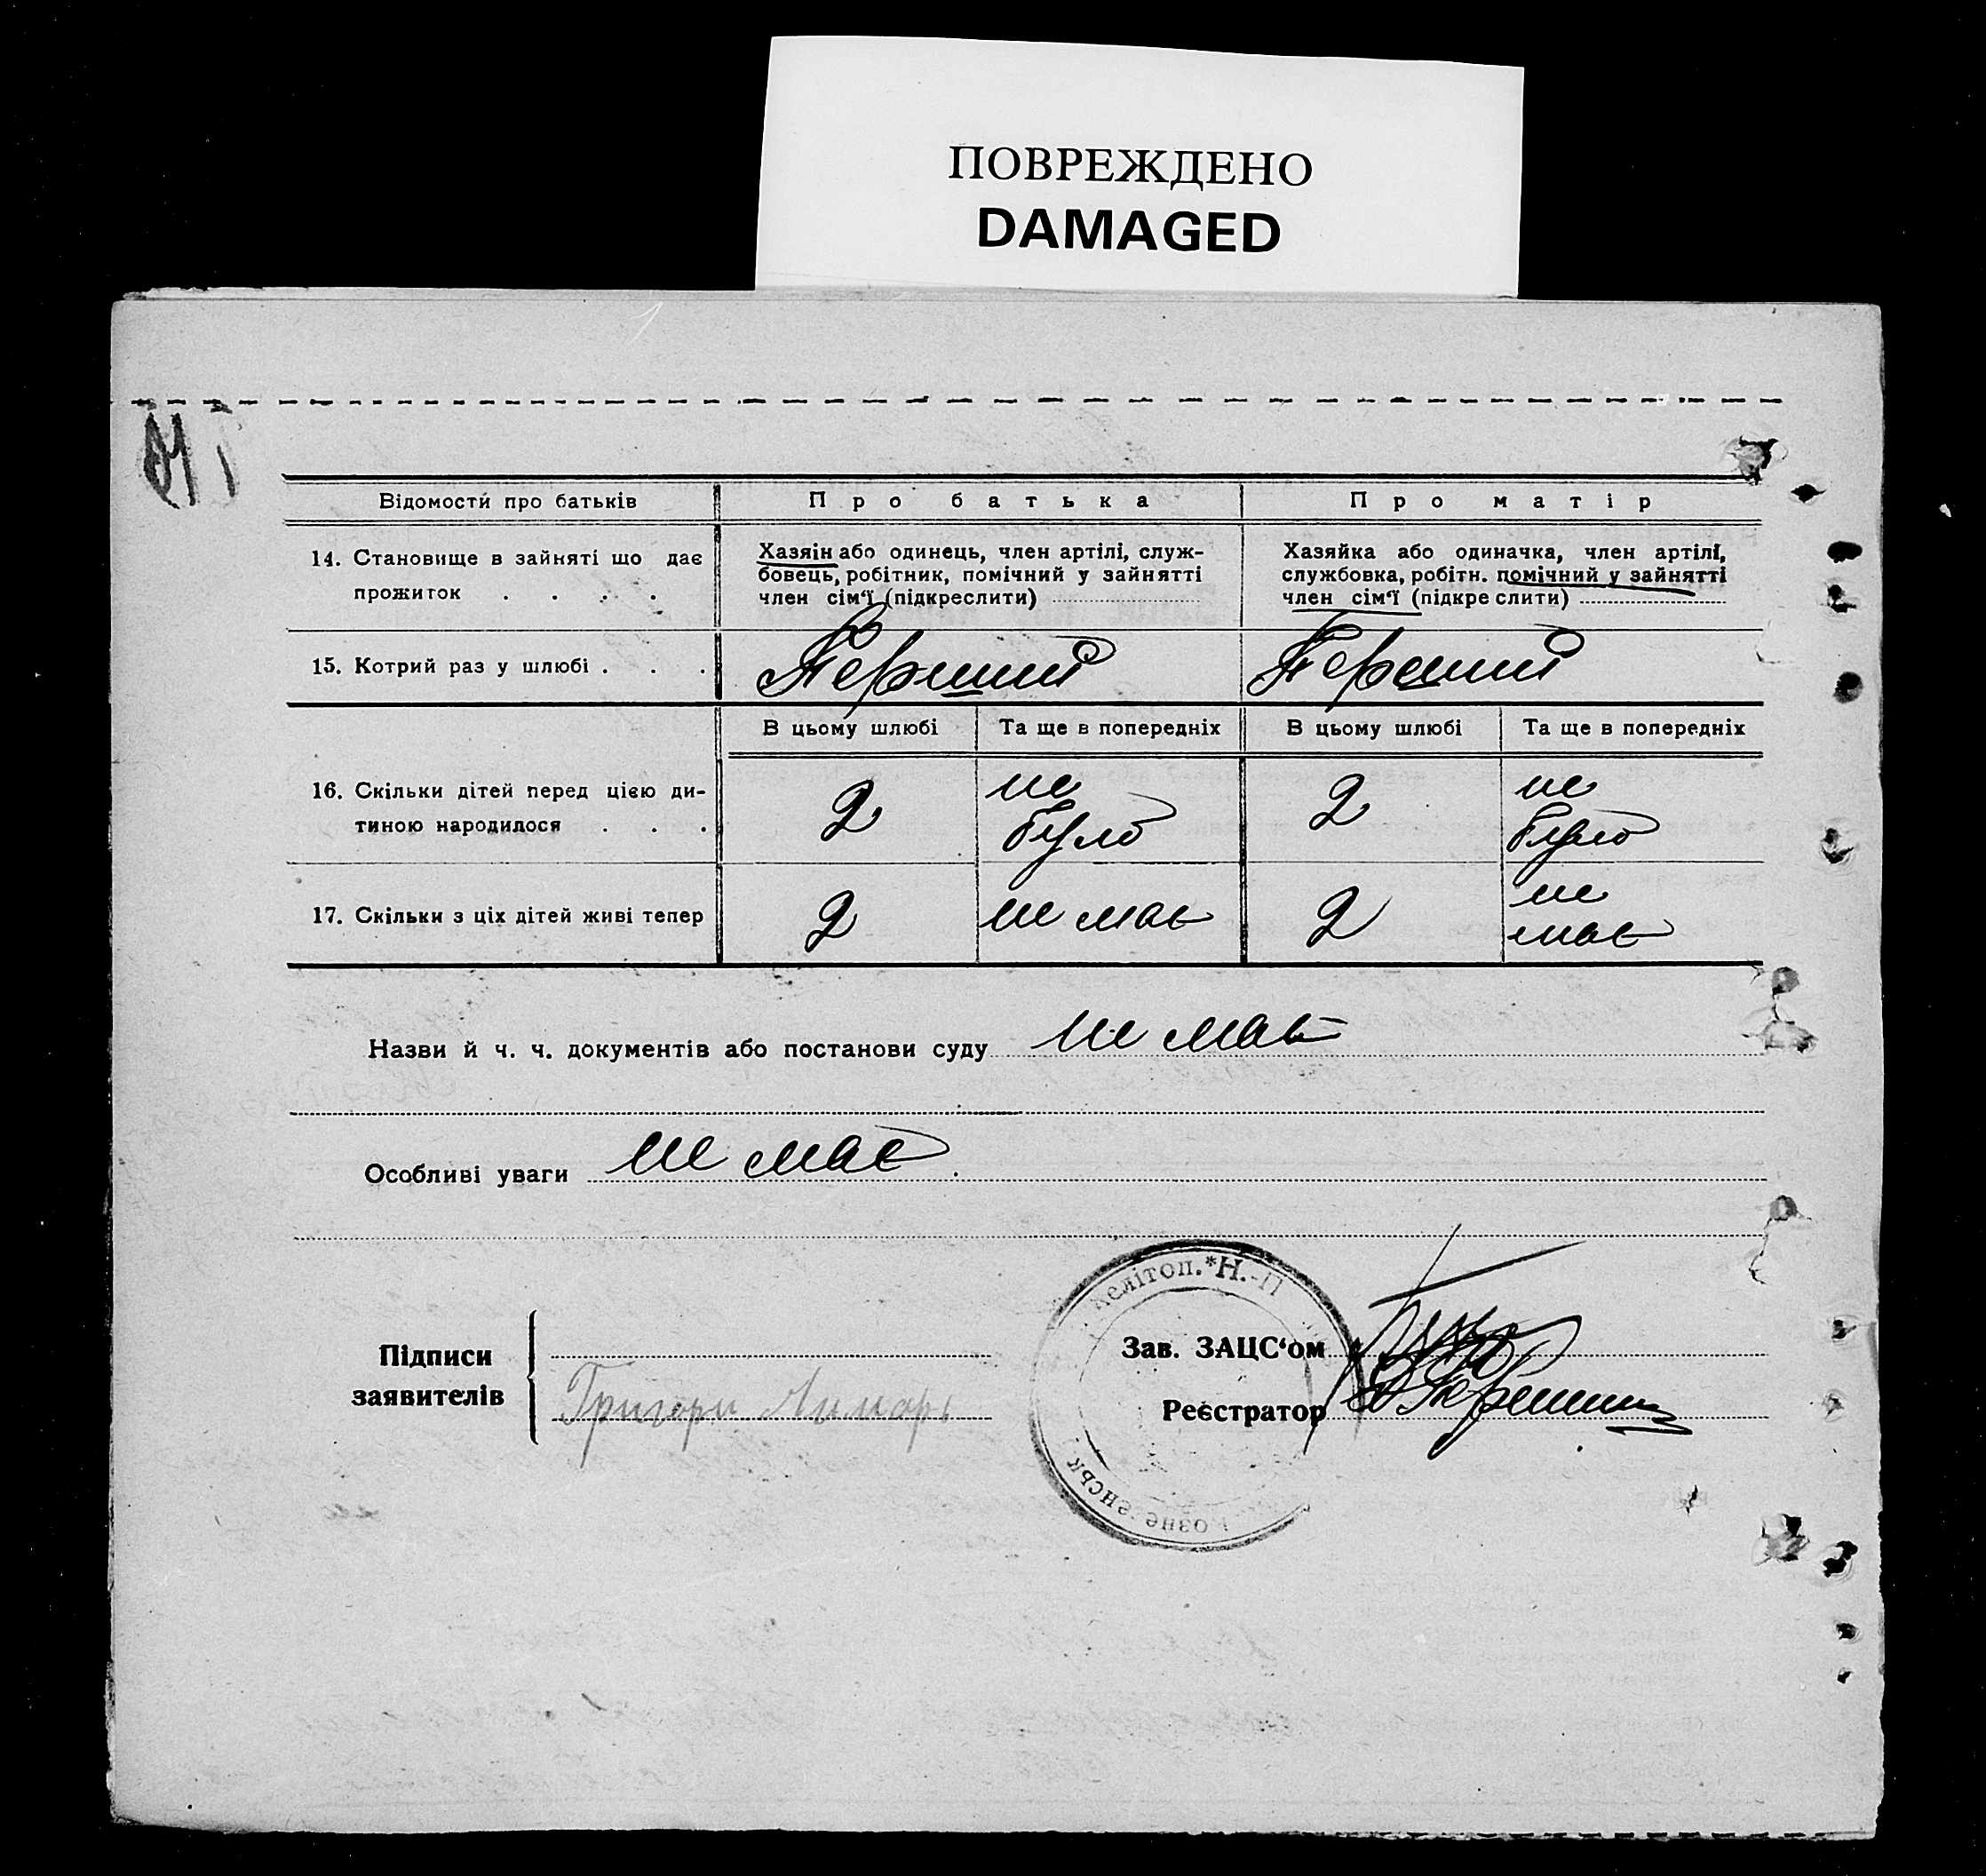 ПОВРЕЖДЕНО
DAMAGED
Відомости про батьків
Про батька
Про матір
14. Становище в зайняті що дає
прожиток . . . .
Хазяін або одинець, член артілі, служ-
бовець, робітник, помічний у зайнятті
член сім‘ї (підкреслити)
Хазяйка або одиначка, член артілі,
службовка, робітн. помічний у зайнятті
член сім‘ї (підкреслити)
15. Котрий раз у шлюбі . . .
Перший
Перший
В цьому шлюбі
Та ще в попередніх
В цьому шлюбі
Та ще в попередніх
16. Скільки дітей перед цією ди-
тиною народилося . . .
2
не
було
2
не
було
17. Скільки з ціх дітей живі тепер
2
не має
2
не
має
Назви й ч. ч. документів або постанови суду не має
Особливі уваги не має
Підписи
заявителів
Григори Лимарь
елітоп. *Н.-П
озне енськ
Зав. ЗАЦС‘ом
Реєстратор